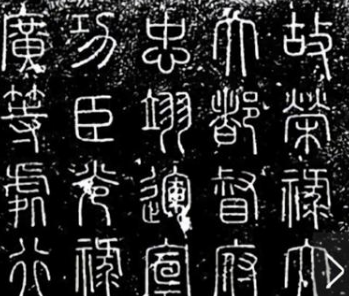 故榮祿大
夫都督府
忠翊運宣
功臣光祿
廣等處行